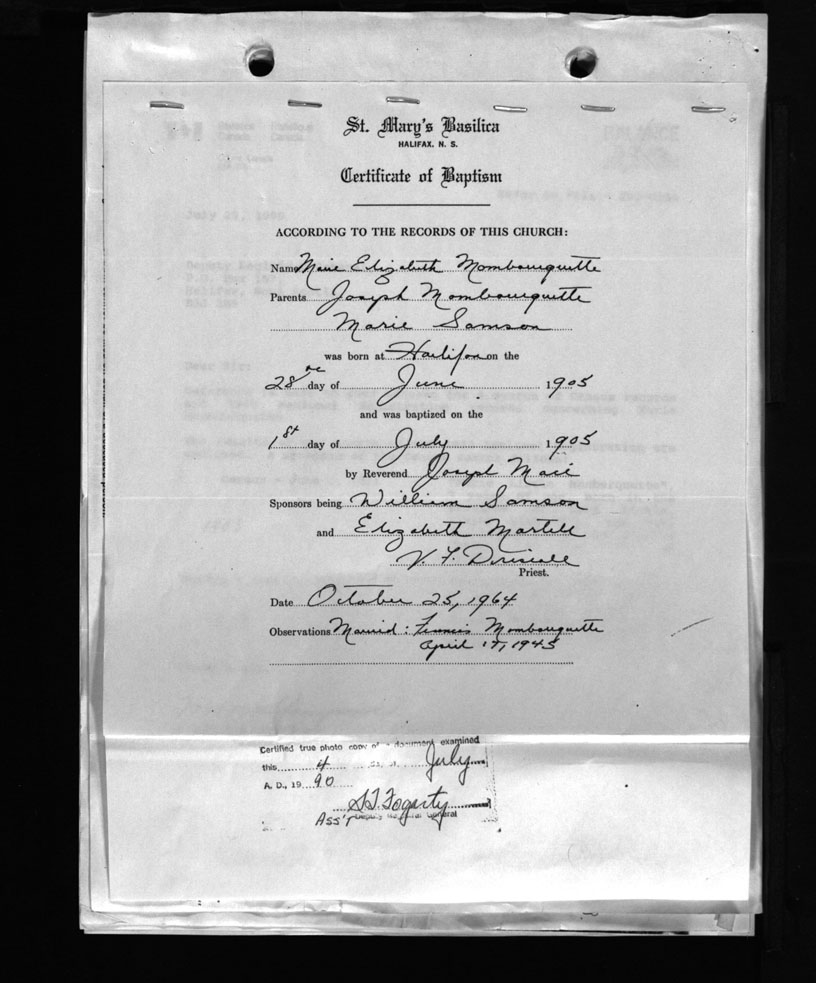 St. Mary's Basilica
HALIFAX, N. S.
Certificate of Baptism
ACCORDING TO THE RECORDS OF THIS CHURCH:
Name Marie Elizabeth Mombourquette
Parents Joseph Mombourquette
Marie Samson
was born at Halifax on the
28 day of June 1905
and was baptized on the
1st day of July 1905
by Reverend Joseph
Sponsors being William Samson
and Elizabeth Martell
V. F. Driscoll
Priest.
Date October 25, 1964
Observations Married: Francis Mombourquette
April 17, 1945
Certified true photo copy of a document examined
this 4 July
A. D., 19 90
S.T. Fogarty
Ass't Deputy General
July
Dear Sir: